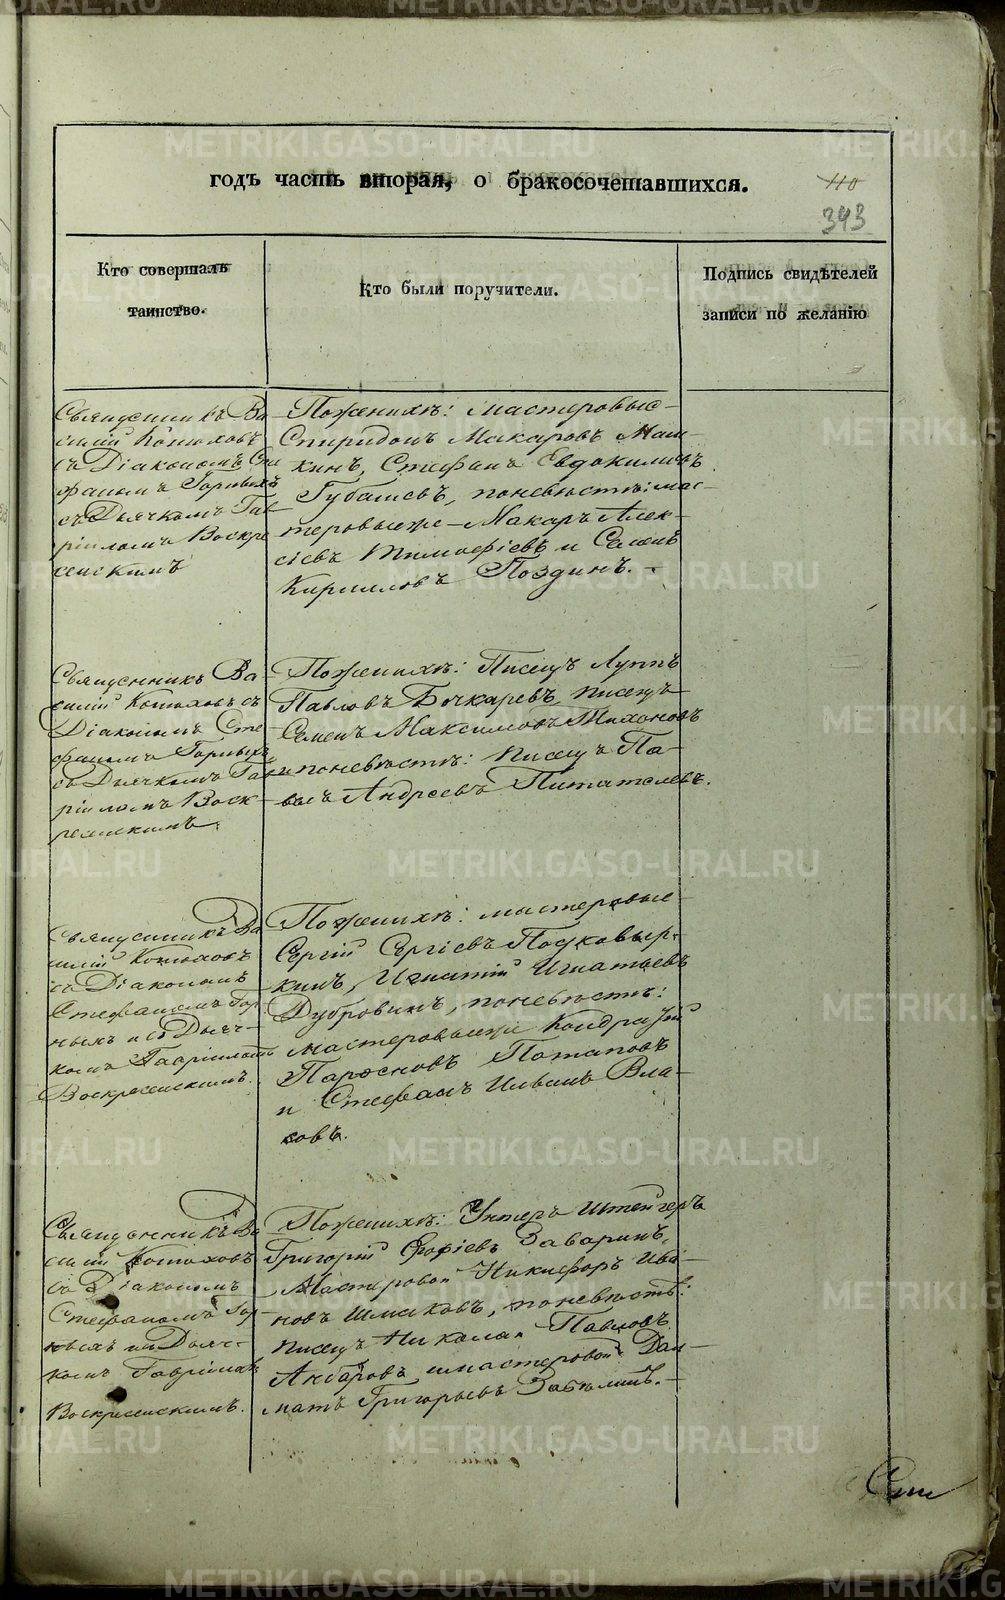 METRIKI.GASO-URAL.RU
годъ часть вторая, о бракосочетавшихся.
110
343
Кто совершалъ
таинство.
Кто были поручители.
Подпись свидѣтелей
записи по желанію
Священникъ Ва
силій Конюховъ
съ Діакономъ Сте
фаномъ Горныхъ
съ Дьячкомъ Гав
ріиломъ Воскре
сенскимъ
Пожених&#1123;: мастеровые
Спиридонъ Макаровъ Маш-
кинъ, Стефанъ Евдокимовъ
Губашевъ, поневѣстѣ: мас-
теровыеже Макаръ Алек-
сіевъ Тимофіевъ и Семенъ
Кириловъ Поздинъ.
Священникъ Ва
силій Конюховъ съ
Діакономъ Сте
фаномъ Горныхъ
съ Дьячкомъ Гав
ріиломъ Воск-
ресенскимъ.
Поженихѣ: Писецъ Луппъ
Павловъ Бочкаревъ, писецъ
Семенъ Максимовъ Тихоновъ
и поневѣстѣ: писецъ Па-
велъ Андреевъ Питателевъ.
Священникъ Ва
силій Конюховъ
съ Діакономъ
Стефаномъ Гор
ныхъ и съ Дьяч-
комъ Гавріиломъ
Воскресенскимъ.
Поженихѣ: мастеровые
Сергій Сергіевъ Подковыр-
кинъ, Игнатій Игнатьевъ
Дубровинъ, поневѣстѣ:
мастеровыеже Кондратій
Парфеновъ Потаповъ
и Стефанъ Ивановъ Вла-
совъ.
Священникъ Ва
силій Конюховъ
съ Діакономъ
Стефаномъ Гор
ныхъ и съ Дьяч-
комъ Гавріиломъ
Воскресенскимъ.
Поженихѣ: Унтеръ Штейгеръ
Григорій Заваринъ,
Мастеровой Никифоръ Ива-
новъ Шмаковъ, поневѣстѣ:
писецъ Николай Павловъ
и мастеровой Дал-
матъ Григорьевъ Забѣлинъ.